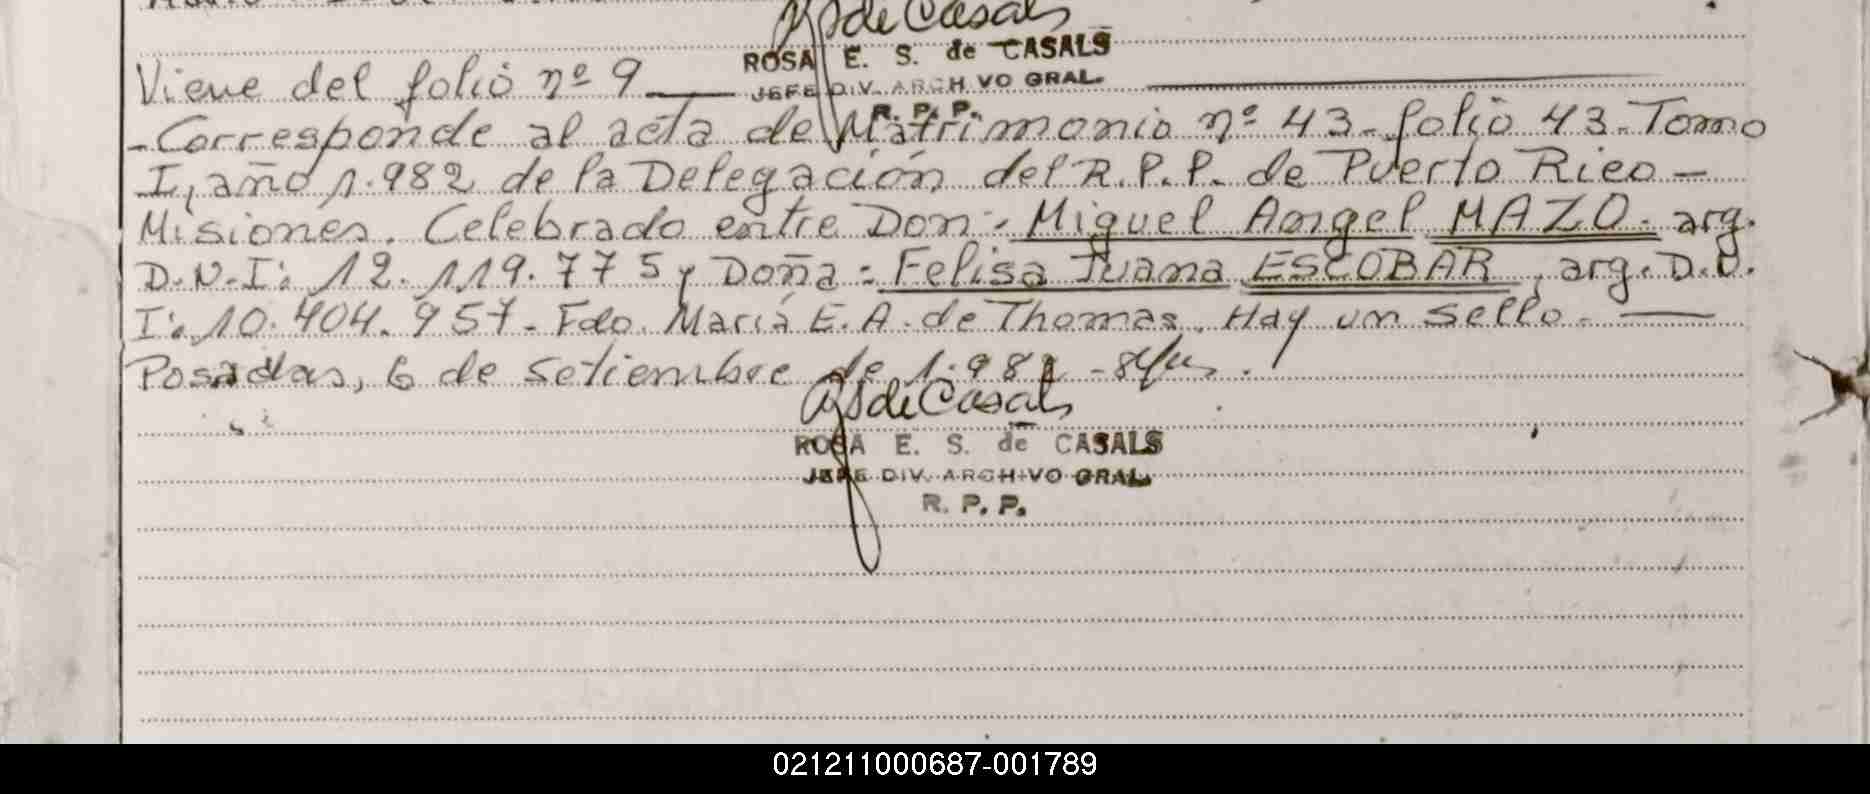 RSde Casals
ROSA E. S. de CASALS
JEFE DIV. ARCHIVO GRAL.
R. P. P.
Viene del folio nº 9
-Corresponde al acta de Matrimonio nº 43-folio 43-Tomo
I, año 1.982 de la Delegación del R.P.P. de Puerto Rico-
Misiones. Celebrado entre Don: Miguel Angel MAZO- arg.
D.N.I: 12.119.775 y Doña: Felisa Juana ESCOBAR, arg. D.N.
I: 10.404.957- Fdo. María E.A. de Thomas. Hay un sello-
Posadas, 6 de Setiembre de 1.982
RSde Casals
ROSA E. S. de CASALS
JEFE DIV. ARCHIVO GRAL.
R. P. P.
021211000687-001789